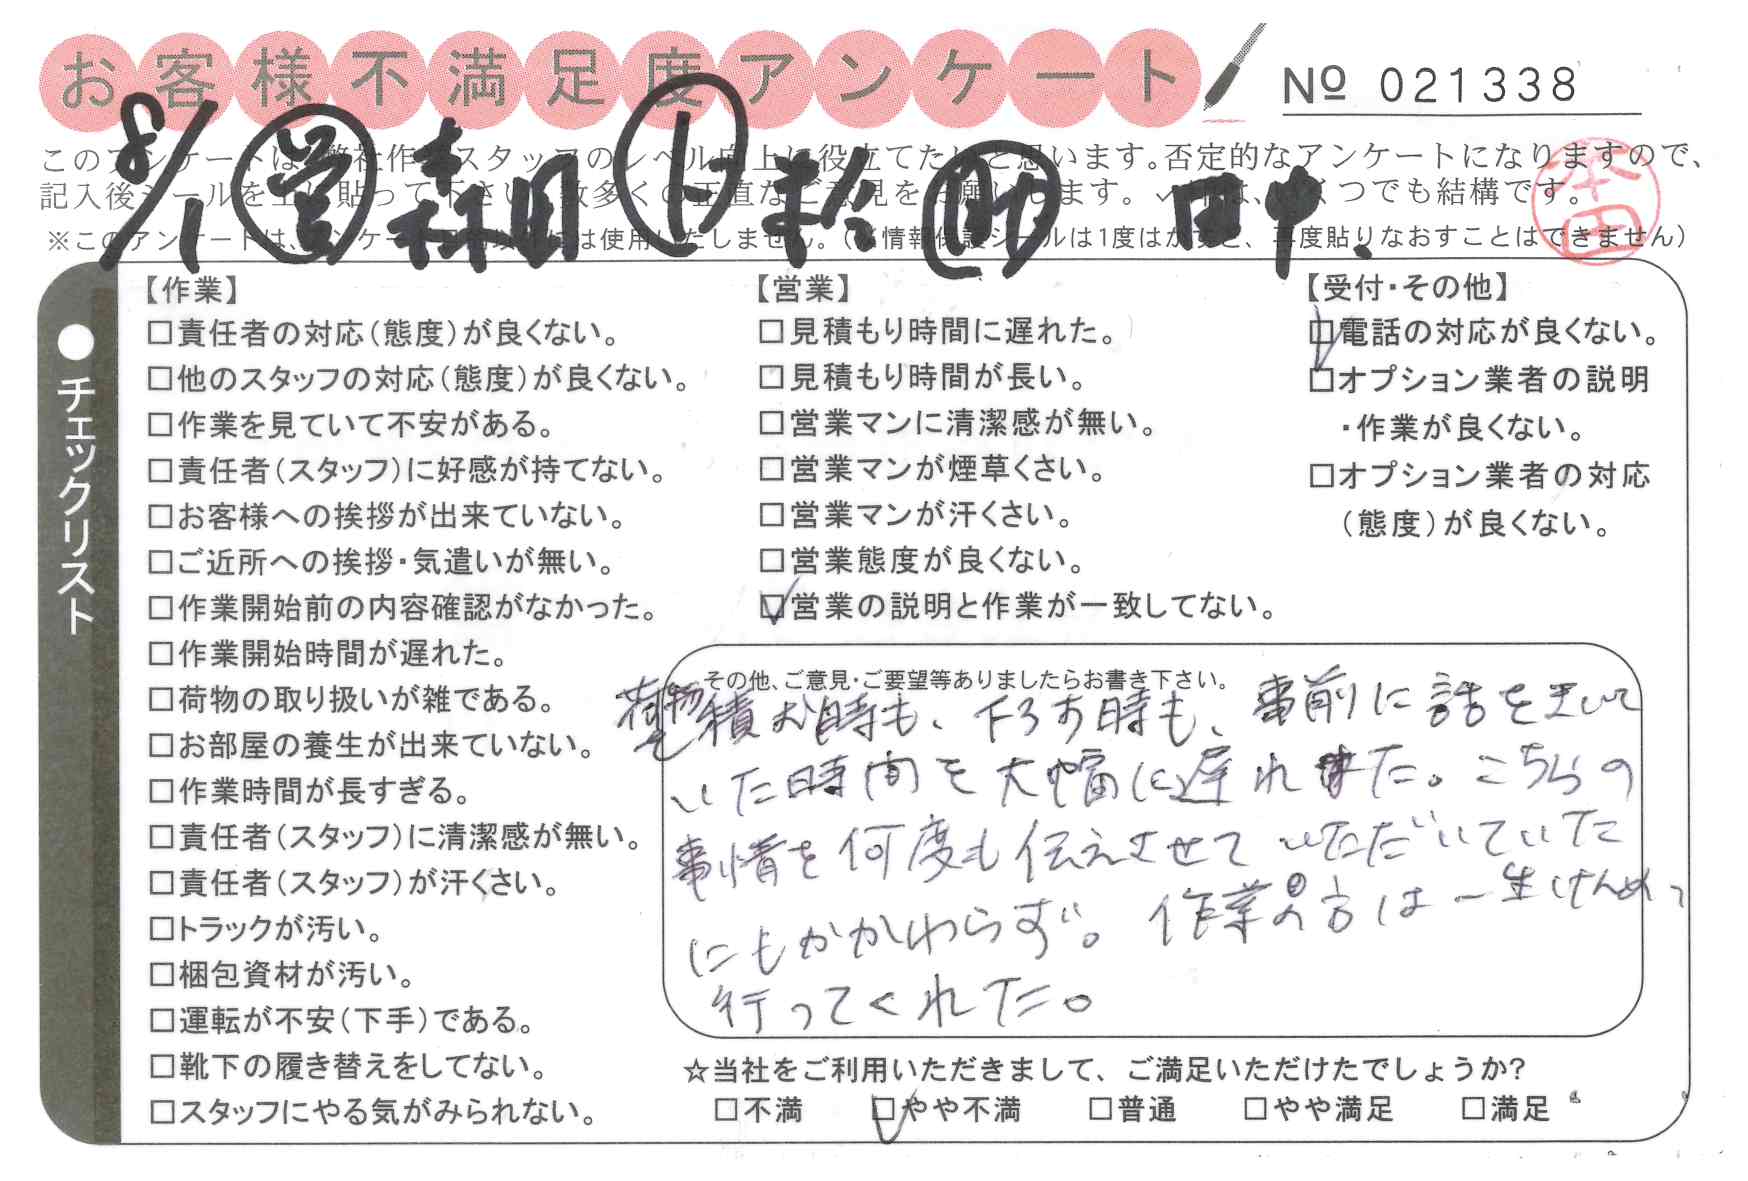 お客様不満足度アンケート
№ 021338
8/1 営 森田 上 松 助 田中
本田
このアンケートは、弊社作業スタッフのレベル向上に役立てたいと思います。否定的なアンケートになりますので、
記入後シールを上に貼って下さい。数多くの正直なご意見をお願いします。✓印は、いくつでも結構です。
※このアンケートは、アンケート目的以外には使用いたしません。（※情報保護シールは1度はがすと、再度貼りなおすことはできません）
●チェックリスト
【作業】
□責任者の対応（態度）が良くない。
□他のスタッフの対応（態度）が良くない。
□作業を見ていて不安がある。
□責任者（スタッフ）に好感が持てない。
□お客様への挨拶が出来ていない。
□ご近所への挨拶・気遣いが無い。
□作業開始前の内容確認がなかった。
□作業開始時間が遅れた。
□荷物の取り扱いが雑である。
□お部屋の養生が出来ていない。
□作業時間が長すぎる。
□責任者（スタッフ）に清潔感が無い。
□責任者（スタッフ）が汗くさい。
□トラックが汚い。
□梱包資材が汚い。
□運転が不安（下手）である。
□靴下の履き替えをしてない。
□スタッフにやる気がみられない。
【営業】
□見積もり時間に遅れた。
□見積もり時間が長い。
□営業マンに清潔感が無い。
□営業マンが煙草くさい。
□営業マンが汗くさい。
□営業態度が良くない。
☑営業の説明と作業が一致してない。
【受付・その他】
☑電話の対応が良くない。
□オプション業者の説明
・作業が良くない。
□オプション業者の対応
（態度）が良くない。
その他、ご意見・ご要望等ありましたらお書き下さい。
荷物を積む時も、下ろす時も、事前に話をきいて
いた時間を大幅に遅れ来た。こちらの
事情を何度も伝えさせていただいていた
にもかかわらず。作業の方は一生けんめい
行ってくれた。
☆当社をご利用いただきまして、ご満足いただけたでしょうか?
□不満 ☑やや不満 □普通 □やや満足 □満足